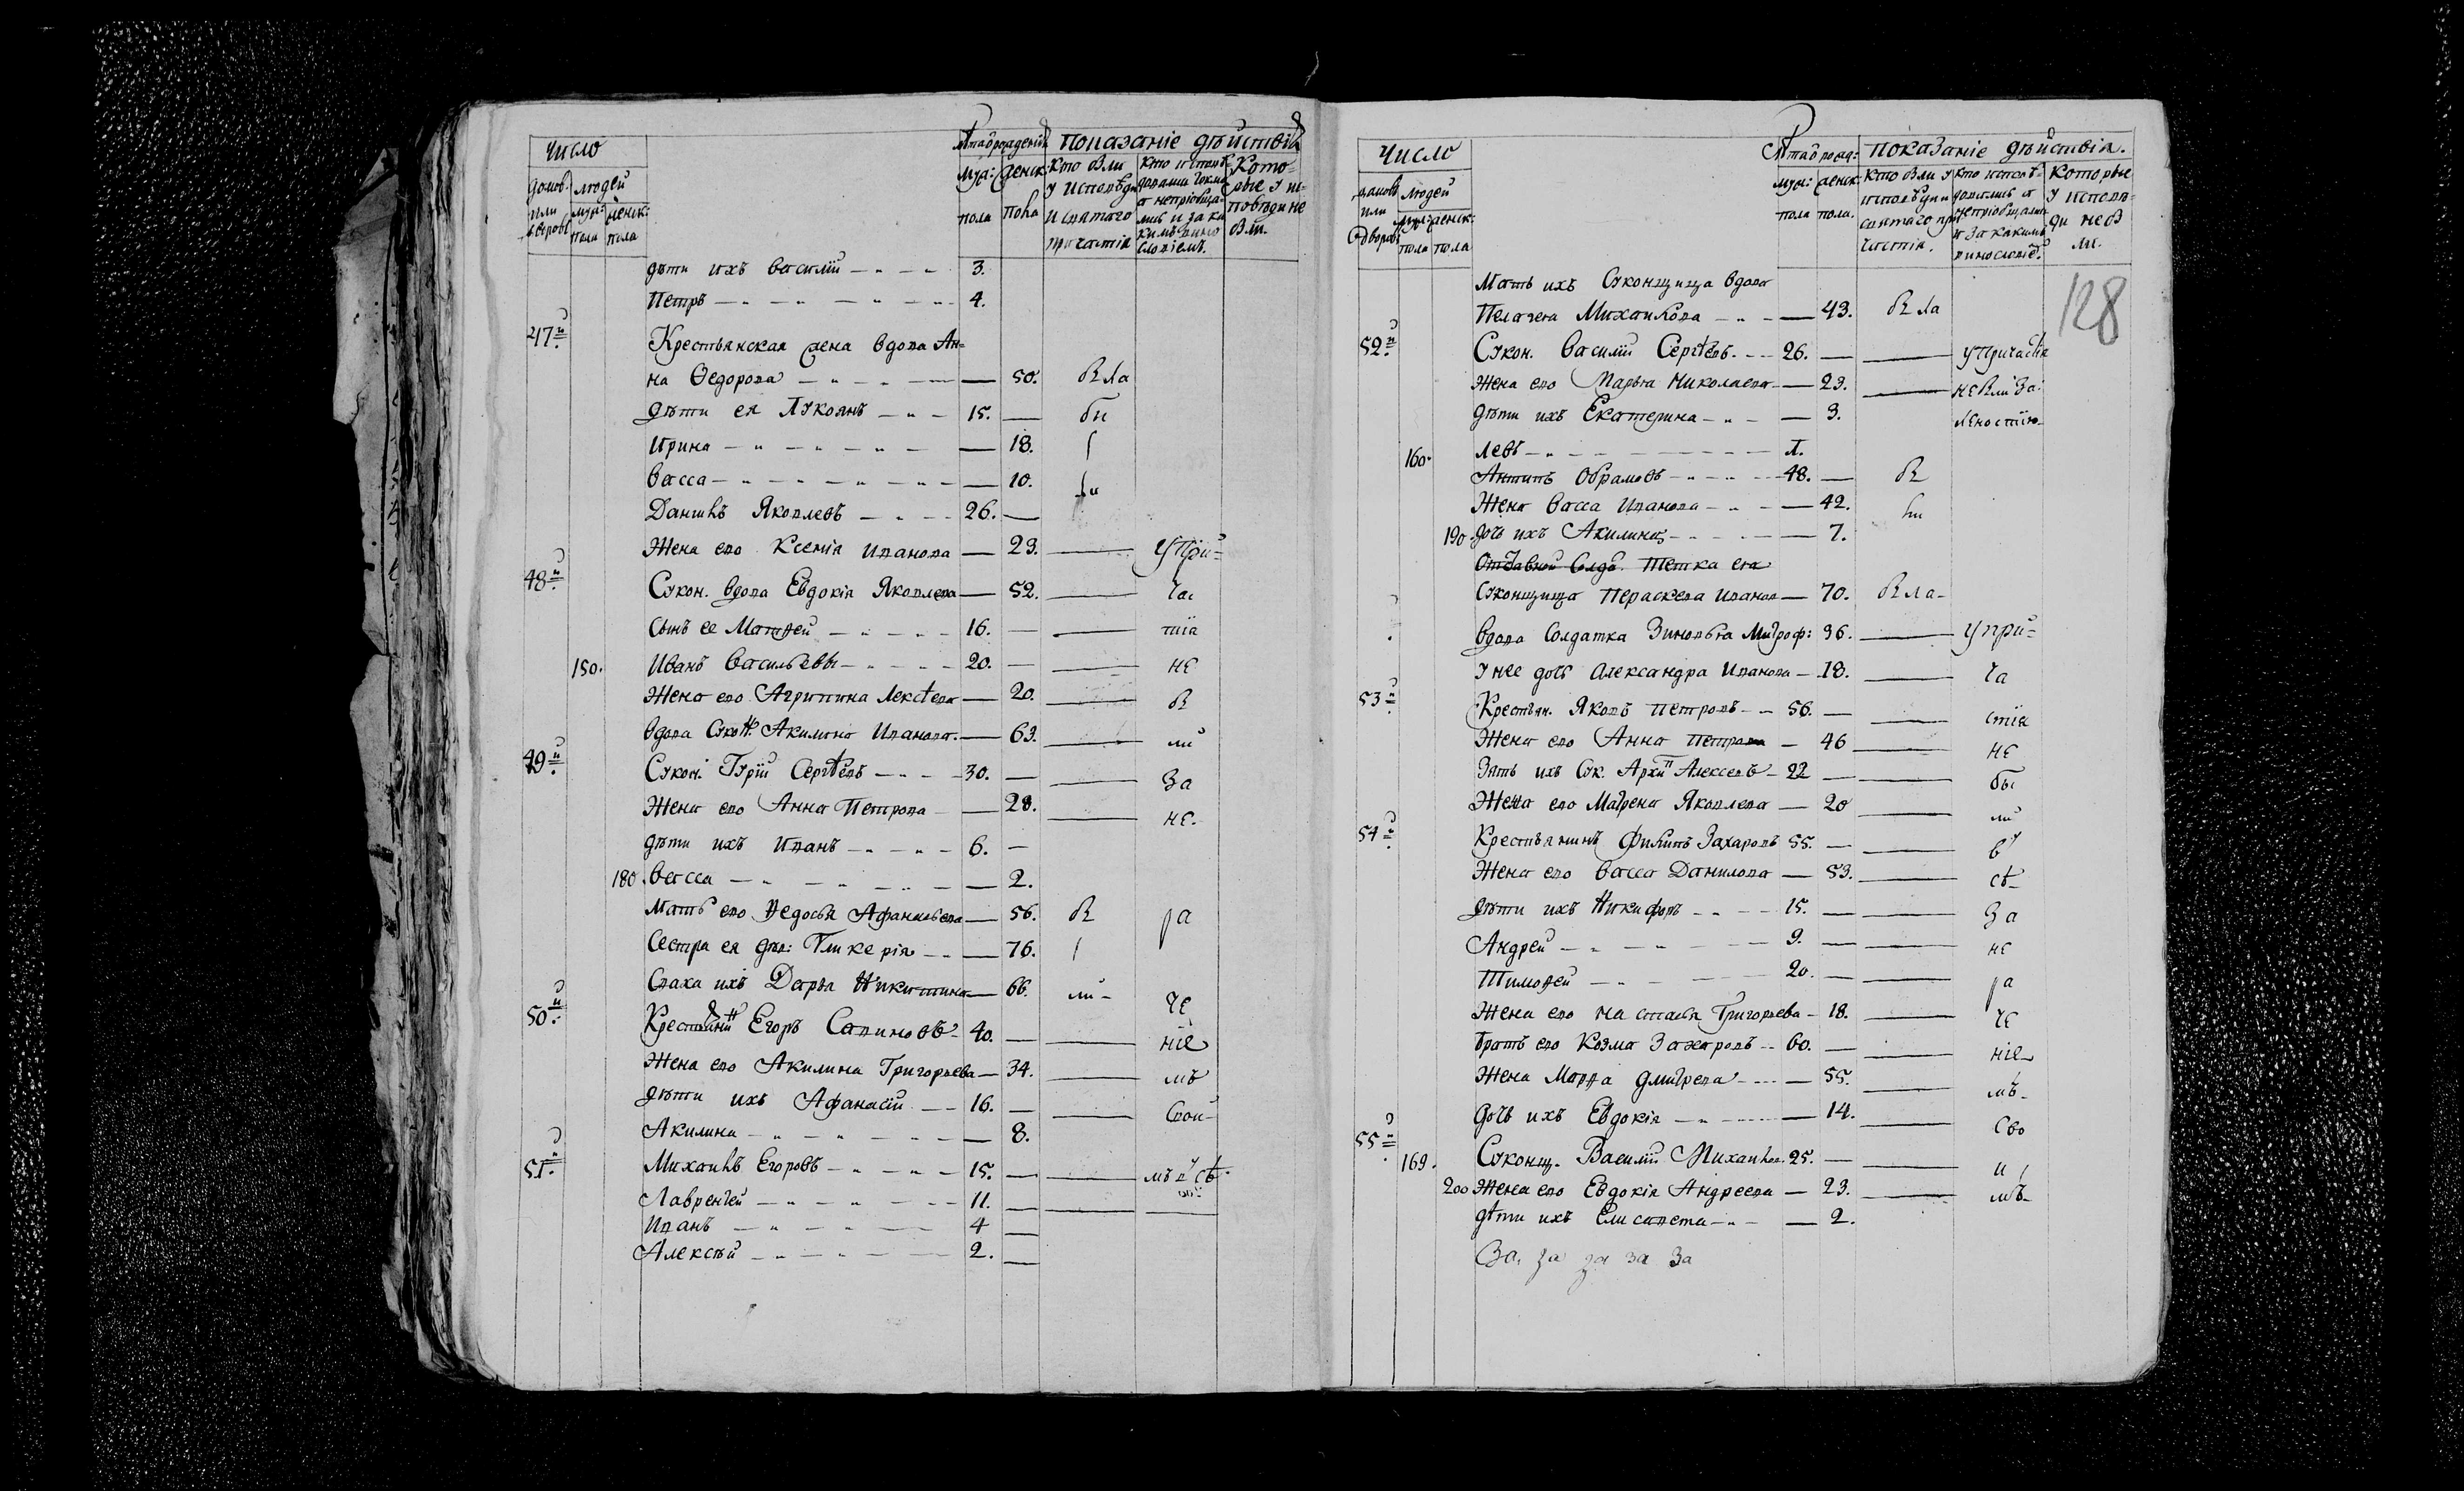 Число
домов.
или
дворовъ
людей
муж:
пола
женск:
пола
Лѣта рожденія
муж:
пола
женск:
пола
Показаніе дѣйствія
Кто былъ
у исповѣди
и святаго
причастія
Кто исповѣ-
дались токмо
а непріобща-
лись и за ка
кимъ вино
словіемъ.
Кото-
рые у ис-
повѣди не
были.
дѣти ихъ Василій 3.
Петръ 4.
47й Крестьянская жена вдова Ан=
на Ѳедорова 50. была
дѣти ея Лукоянъ 15. бы
Ирина 18.
Васса 10. ли
Данилъ Яковлевъ 26.
Жена его Ксенія Иванова 23. у при=
48й Сукон. вдова Евдокія Яковлева 52. час
Сынъ ее Матѳей 16. тія
150. Иванъ Васильевъ 20. не
Жена его Агрипина Лексѣева 20. б
вдова Сукон. Акилина Иванова. 63. ли
49й Сукон. Гурій Сергѣевъ 30. за
Жена его Анна Петрова 28. не-
дѣти ихъ Иванъ 6.
180 Васса 2.
Мать его Ѳедосья Афанасьева 56. б ра
Сестра ея дѣв: Гликерія 76.
Сваха ихъ Дарья Никитина 66. ли- че
50й Крестьянин Егоръ Савиновъ 40. ніе
Жена его Акилина Григорьева 34. мъ
дѣти ихъ Афанасій 16. свои-
Акилина 8.
51й Михаилъ Егоровъ 15. мъ у Св.
Лаврентей 11.
Иванъ 4
Алексѣй 2.
Число
домовъ
или
дворовъ
людей
муж:
пола
женск:
пола
Лѣта рожд:
муж:
пола
женск:
пола.
Показаніе дѣйствія.
Кто были у
исповѣди и
святаго при
частія.
Кто исповѣ-
дались а
непріобщались
и за какимъ
винословіе.
Которые
у исповѣ-
ди не бы
ли.
128
Мать ихъ Суконщица вдова
Пелагея Михаилова 43. была
52й Сукон. Василій Сергѣевъ 26. у причастія
жена его Марья Николаева 23. не были за
дѣти ихъ Екатерина 3. леностію
160. Левъ 1.
Антипъ Обрамовъ 48. б
Жена Васса Иванова 42. ли
190 дочь ихъ Акилина 7.
Отставной Солда. Тетка ея
Суконщица Пераскева Иванов 70. была-
вдова Солдатка Зиновья Митроф: 36. у при=
у нее дочь Александра Иванова 18. ча
53й Крестьян. Яковъ Петровъ 56. стія
Жена его Анна Петрова 46 не
Зять ихъ Сук. Архип Алексевъ 22 бы
Жена его Матрена Яковлева 20 ли
54й Крестьянинъ Филипъ Захаровъ 55. у
Жена его Васса Данилова 53. св-
дѣти ихъ Никифоръ 15. за
Андрей 9. не
Тимоѳей 20. ра
Жена его Настасья Григорьева 18. че
братъ его Козма Захаровъ 60. ніе
Жена Марѳа Дмитрева 55. мъ-
дочь ихъ Евдокія 14. сво
55й 169. Суконщ. Василій Михаилов. 25. и
200 Жена его Евдокія Андреева 23. мъ-
дѣти ихъ Елисавета 2.
За, за за за за